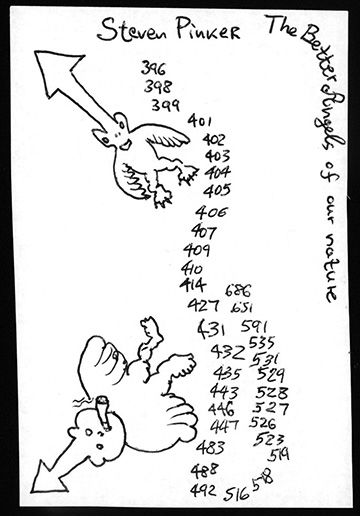 Steven Pinker
The Better Angels of our nature
396
398
399
401
402
403
404
405
406
407
409
410
414
427
431
432
435
443
446
447
483
488
492
516
518
519
523
526
527
528
529
531
535
591
651
686